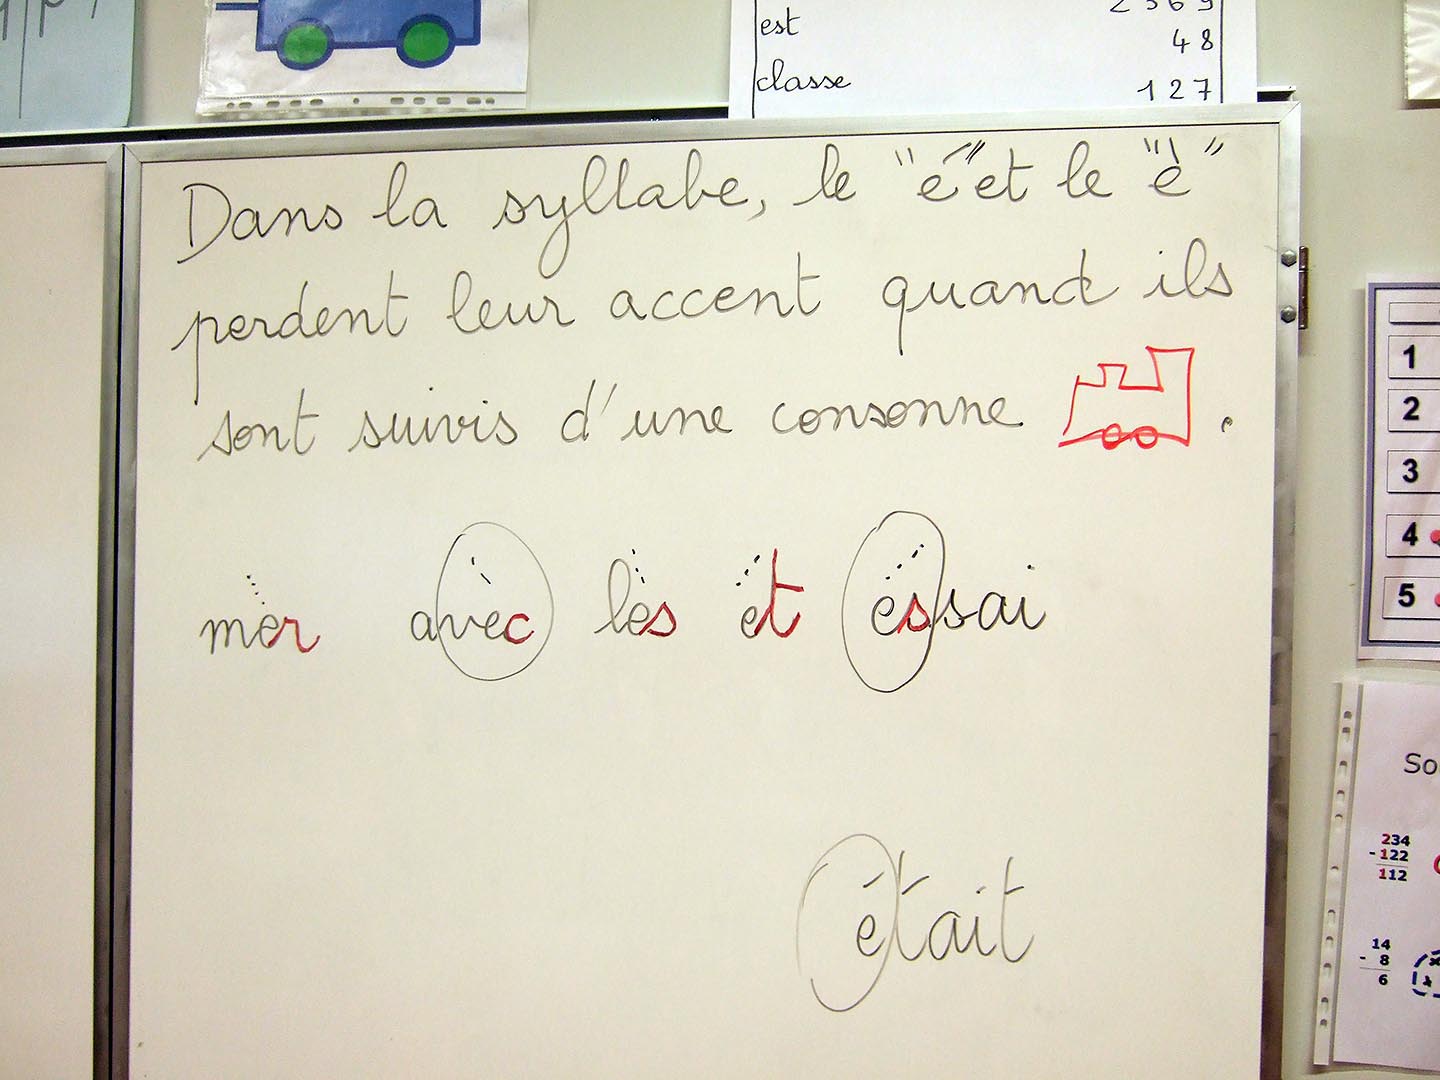 est
48
classe
127
Dans la syllabe, le "é" et le "è"
perdent leur accent quand ils
sont suivis d'une consonne .
mer avèc les et essai
était
1
2
3
4
5
So
234
- 122
112
14
- 8
6